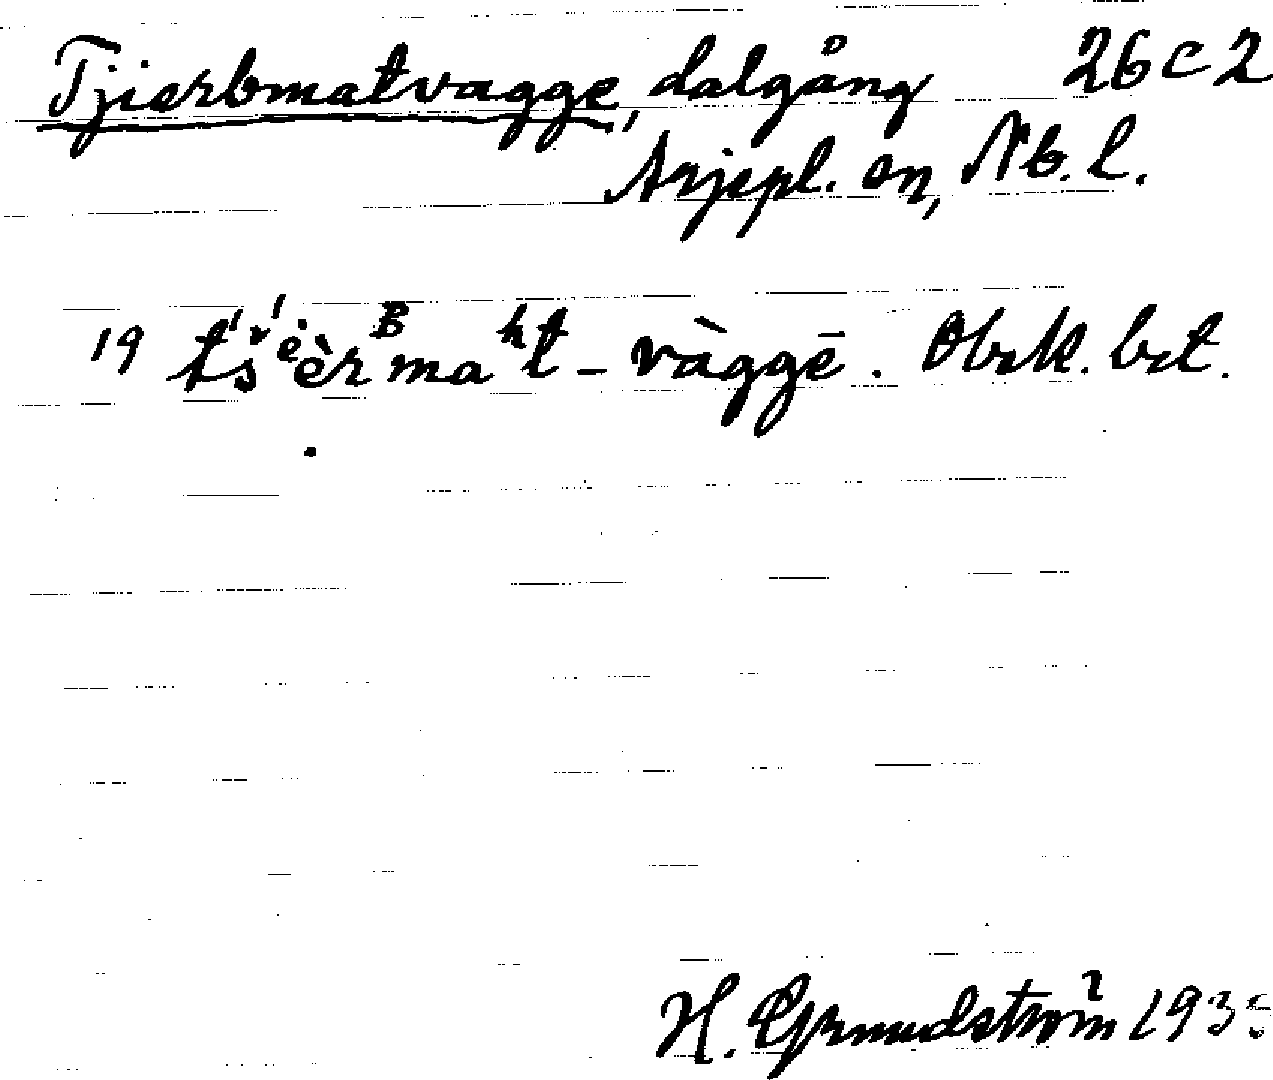 Tjierbmatvagge, dalgång 26 C 2
Arjepl. sn, Nb. l.
19 t́š́ᵉ̇èrᴮmaʰt-vàggē. Obrk. bet.
H. Grundström 193